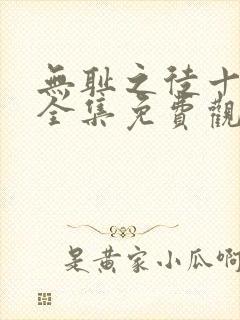 無耻之徒十
全集免費觀
是黃家小瓜啊